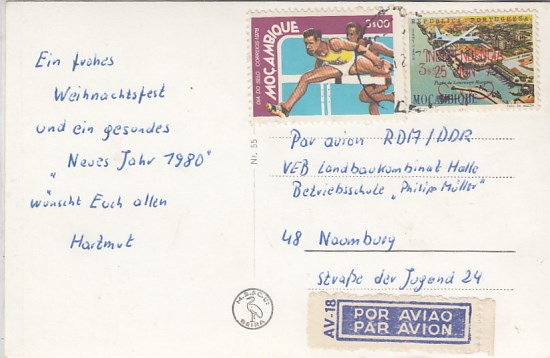 Ein frohes
Weihnachtsfest
und ein gesundes
„Neues Jahr 1980"
wünscht Euch allen
Hartmut
Nr. 55
BEIRA
DIA DO SELO CORREIOS 1978
MOÇAMBIQUE
5$00
REPÚBLICA PORTUGUESA
INDEPENDÊNCIA
25 JUN 75
MOÇAMBIQUE
Par avion RDA/DDR
VEB Landbaukombinat Halle
Betriebsschule „Philipp Müller"
48 Naumburg
Straße der Jugend 24
AV-18
POR AVIAO
PAR AVION